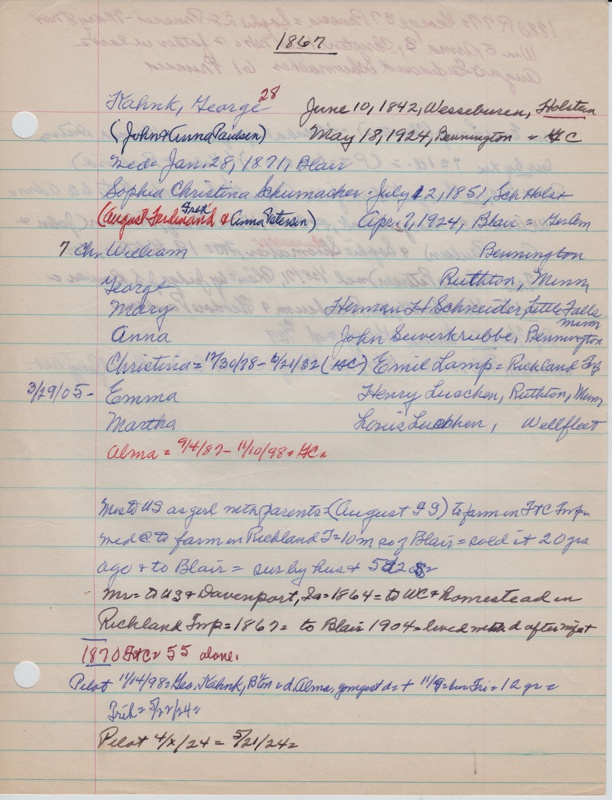 1867
Kahnk, George 28 June 10, 1842, Wesseburen, Holstein
(John & Anna Paulsen) May 18, 1924, Bennington = HC
med = Jan. 28, 1871, Blair
Sophia Christina Schumacher = July 12, 1851, Sch Holst
(August Ferdinand Fred & Anna Petersen) Apr 7, 1924, Blair = Ger Cem
7 Chn William Bennington
George Ruthton, Minn
Mary Herman H Schneider Little Falls Minn
Anna John Suverkrubbe, Bennington
Christina = 12/30/78 - 6/21/82 (HC) Emil Lamp = Richland Twp
3/29/05 - Emma Henry Lueschen, Ruthton, Minn
Martha Louis, Wellfleet
Alma = 9/4/87 - 11/10/98 = HC
Mrs to US as girl with parents = (August F S) to farm in Ft C Twp =
med @ to farm on Richland T = 10 m so of Blair = sold it 20 yrs
ago & to Blair = sur by hus & 5d 2s
Mr = to US & Davenport, Ia = 1864 = to WC & homestead in
Richland Twp = 1867 = to Blair 1904 = lived with d after
1870 Ft C = 55 alone.
Pilot 11/14/98 = Geo. Kahnk, B'ton = d Alma, youngest d = + 11/9 = bur Fri = 12 yrs =
Trib = 5/22/24 =
Pilot 4/x/24 = 5/21/24 =